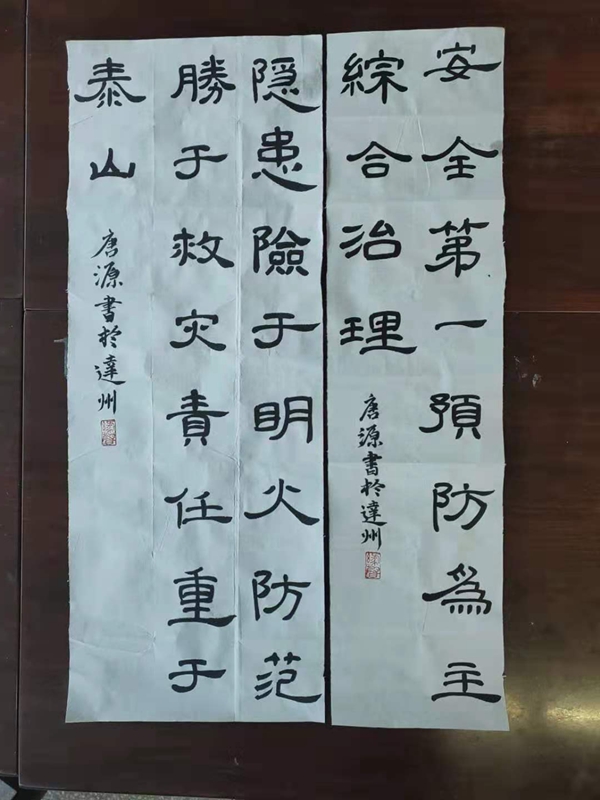 安全第一預防為主
綜合治理
唐源書於達州
隐患險于明火防范
勝于救灾責任重于
泰山
唐源書於達州